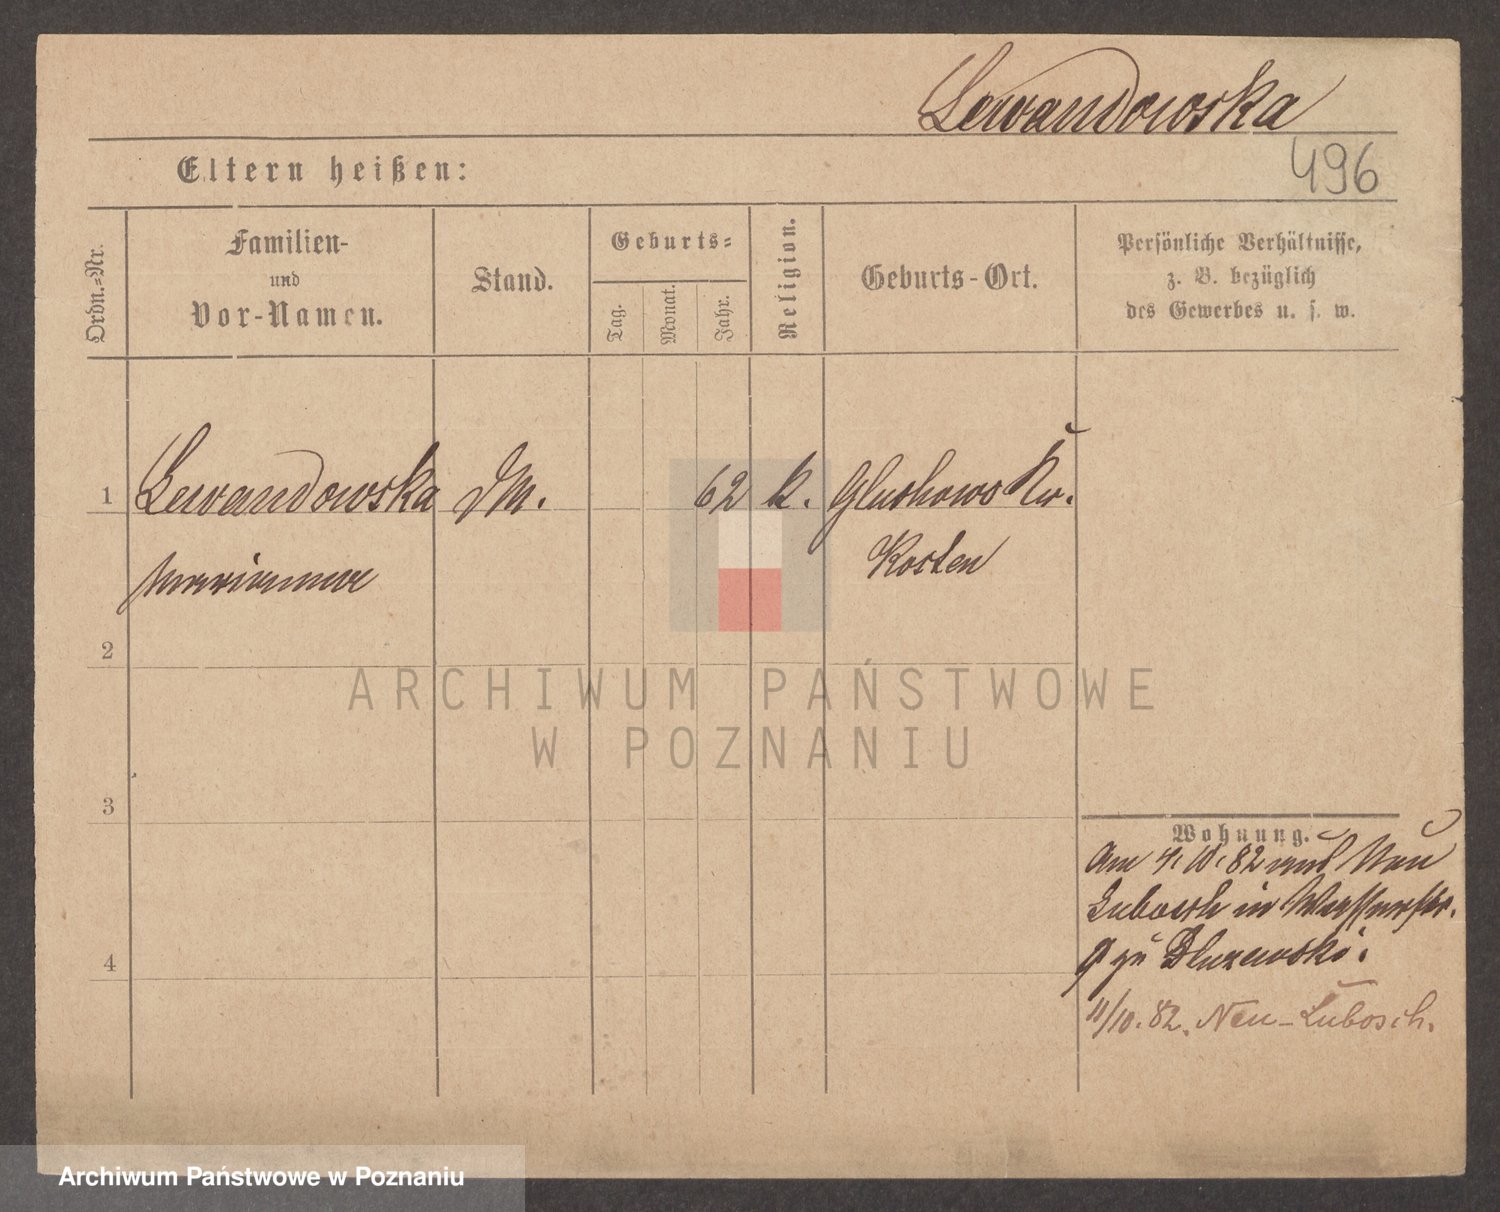 Lewandowska
496
Eltern heißen:
Ordn.-Nr.
Familien-
und
Vor-Namen.
Stand.
Geburts-
Tag.
Monat.
Jahr.
Religion.
Geburts-Ort.
Persönliche Verhältnisse,
z. B. bezüglich
des Gewerbes u. s. w.
1 Lewandowska DM. 62 k. Gluchowo Kr.
Marianna Kosten
2
3
4
Wohnung.
Am 4. 10. 82 aus Neu
Lubosch in Wasserstr.
9 zu Dluzewski.
11/10. 82. Neu-Lubosch.
ARCHIWUM PAŃSTWOWE
W POZNANIU
Archiwum Państwowe w Poznaniu